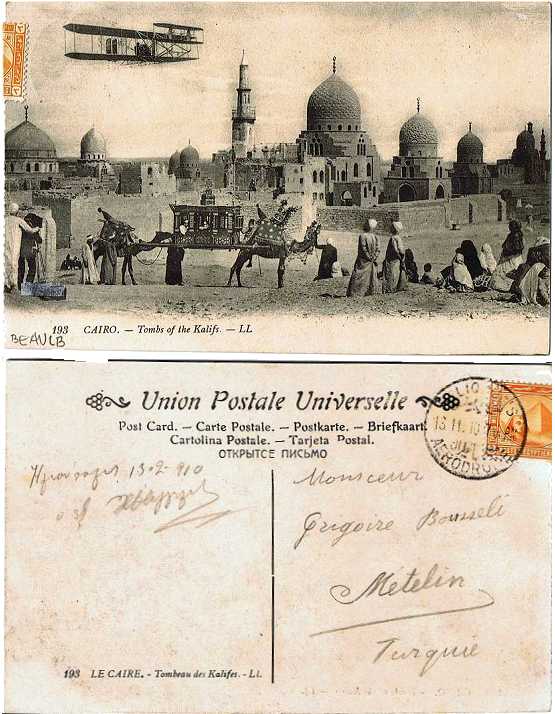 193 CAIRO. — Tombs of the Kalifs. — LL
BEAULB
Union Postale Universelle
Post Card. — Carte Postale. — Postkarte. — Briefkaart
Cartolina Postale. — Tarjeta Postal.
ОТКРЫТСЕ ПИСЬМО
AERODROME
13-2-910
Monsieur
Grigoire Bousseli
Metelin
Turquie
193 LE CAIRE. - Tombeau des Kalifes. - LL.